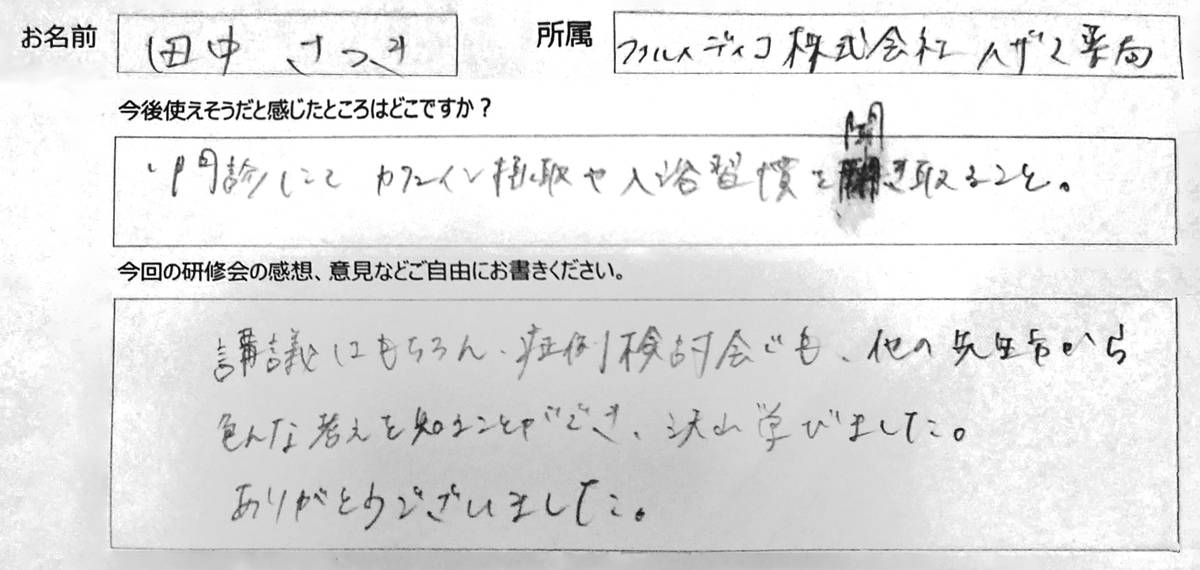 お名前 田中 さつき 所属 ファルメディコ株式会社 ハザマ薬局
今後使えそうだと感じたところはどこですか？
問診にて カフェイン摂取や入浴習慣を聞き取ること。
今回の研修会の感想、意見などご自由にお書きください。
講義はもちろん、症例検討会でも、他の先生方から
色んな考えを知ることができ、沢山学びました。
ありがとうございました。